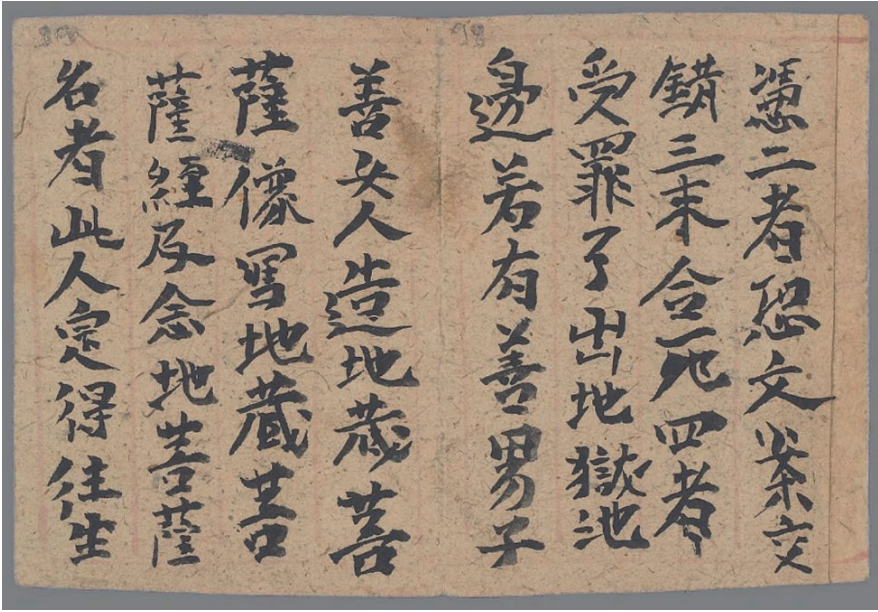 憑二者恐文案交
錯三未合死四者
受罪了出地獄池
邊若有善男子
善女人造地藏菩
薩像寫地藏菩
薩經及念地菩薩
名者此人定得往生